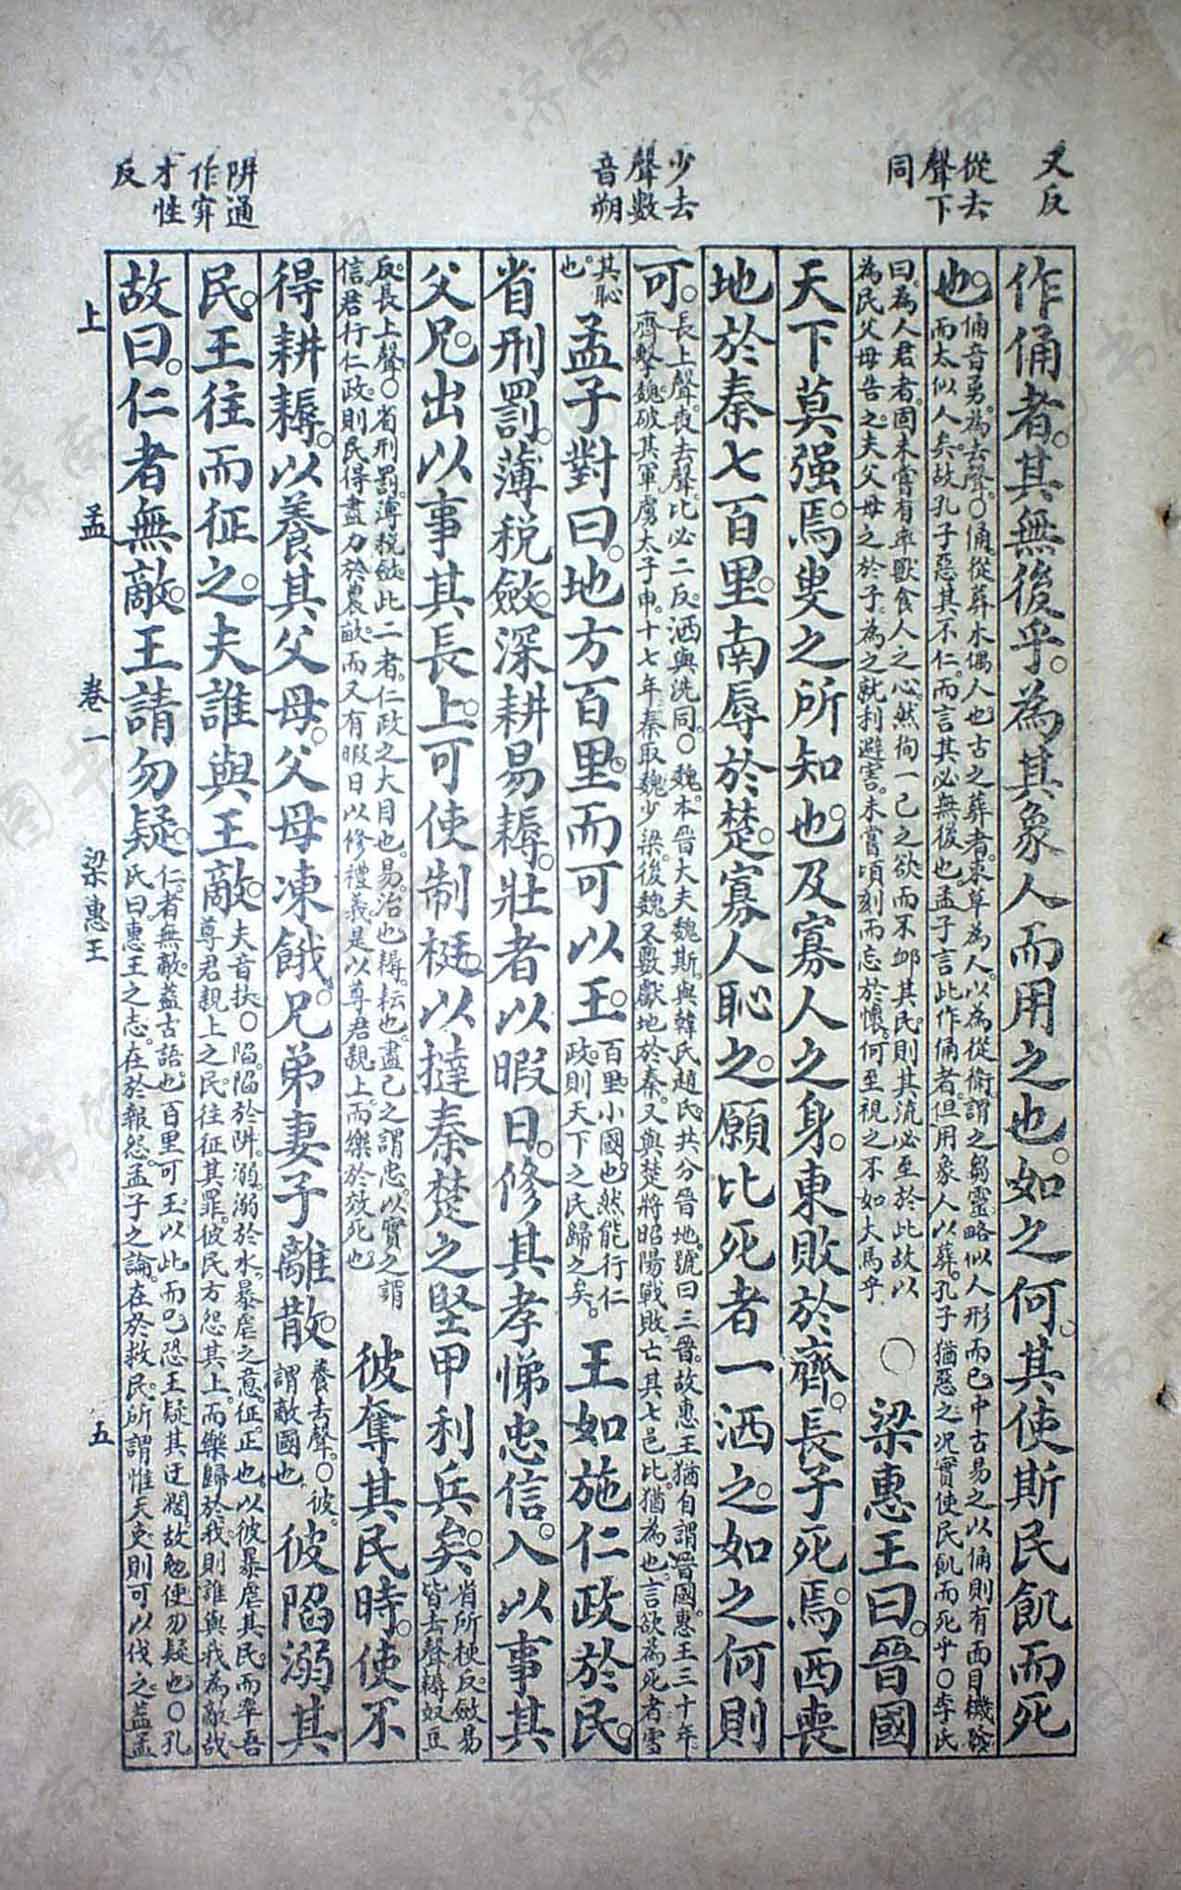 又反
從去
聲下
同
少去
聲數
音朔
阱通
作穽
才性
反
作俑者。其無後乎。為其象人而用之也。如之何。其使斯民飢而死
也。
俑音勇。為去聲。○俑。從葬木偶人也。古之葬者。束草為人。以為從衛。謂之芻靈。略似人形而已。中古易之以俑。則有面目機發
而太似人矣。故孔子惡其不仁。而言其必無後也。孟子言此作俑者。但用象人以葬。孔子猶惡之。況實使民飢而死乎。○李氏
曰。為人君者。固未嘗有率獸食人之心。然徇一己之欲。而不卹其民。則其流必至於此。故以
為民父母告之。夫父母之於子。為之就利避害。未嘗頃刻而忘於懷。何至視之不如犬馬乎
○梁惠王曰。晉國
天下莫强焉。叟之所知也。及寡人之身。東敗於齊。長子死焉。西喪
地於秦七百里。南辱於楚。寡人恥之。願比死者一洒之。如之何則
可。
長上聲。喪去聲。比必二反。洒與洗同。○魏。本晉大夫魏斯。與韓氏趙氏。共分晉地。號曰三晉。故惠王猶自謂晉國。惠王三十年。
齊擊魏。破其軍。虜太子申。十七年。秦取魏少梁。後魏又數獻地於秦。又與楚將昭陽戰敗。亡其七邑。比。猶為也。言欲為死者雪
其恥
也。
孟子對曰。地方百里。而可以王。
百里。小國也。然能行仁
政。則天下之民歸之矣。
王如施仁政於民。
省刑罰。薄稅斂。深耕易耨。壯者以暇日。修其孝悌忠信。入以事其
父兄。出以事其長上。可使制梃。以撻秦楚之堅甲利兵矣。
省所梗反。斂易
皆去聲。耨奴豆
反。長上聲。○省刑罰。薄稅斂。此二者。仁政之大目也。易。治也。耨。耘也。盡己之謂忠。以實之謂
信。君行仁政。則民得盡力於農畝。而又有暇日以修禮義。是以尊君親上。而樂於效死也
彼奪其民時。使不
得耕耨。以養其父母。父母凍餓。兄弟妻子離散。
養去聲。○彼。
謂敵國也
彼陷溺其
民。王往而征之。夫誰與王敵。
夫音扶。○陷。陷於阱。溺。溺於水。暴虐之意。征。正也。以彼暴虐其民。而率吾
尊君親上之民。往征其罪。彼民方怨其上。而樂歸於我。則誰與我為敵哉
故曰。仁者無敵。王請勿疑。
仁者無敵。蓋古語也。百里可王。以此而已。恐王疑其迂闊。故勉使勿疑也。○孔
氏曰。惠王之志。在於報怨。孟子之論。在於救民。所謂惟天吏則可以伐之。蓋孟
上 孟 卷一 梁惠王 五